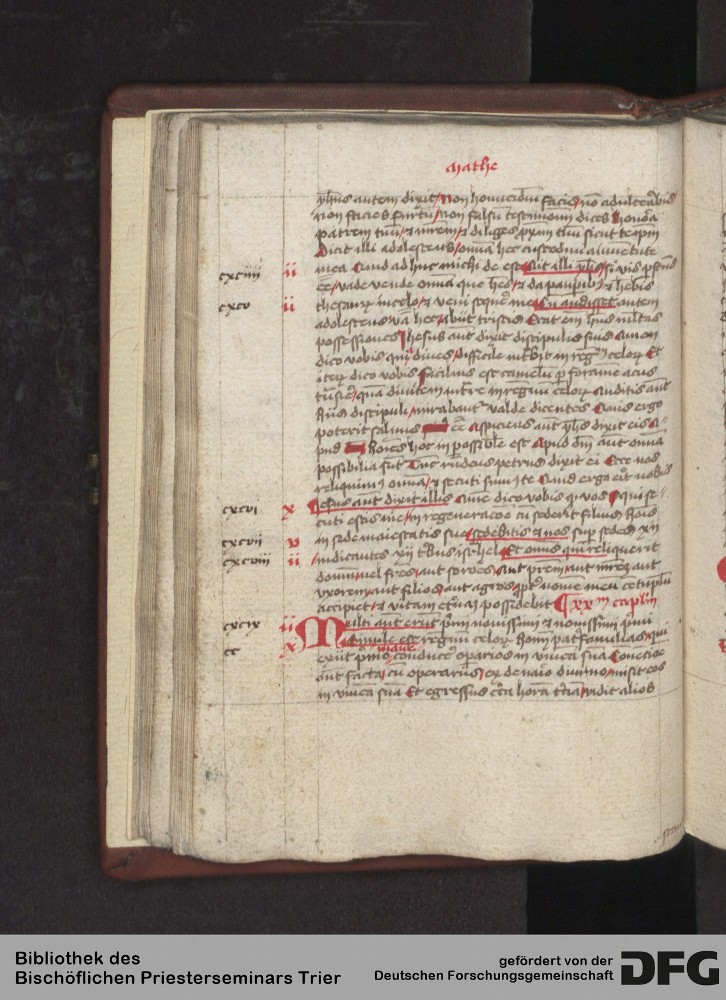 Mathe
yhus autem dixit Non homicidiu facies no adulterabis
non facies furtu non falsu testimoniu dices honora
patrem tuu et mrem et diliges pximu tuu sicut te ipm
Dicit illi adolescens omnia hec custodivi a iuventute
cxciiii ii mea Quid adhuc michi deest Ait illi yhus si vis pfectus
ee vade vende omnia que hes et da paupib et hebis
cxcv ii thesauru in celo et veni sequere me Cu audisset autem
adolescens hec abiit tristis Erat em hns multas
possessiones Ihesus aut dixit discipulis suis Amen
dico vobis quia dives difficile intrabit in regnu celor Et
iteru dico vobis facilius est camelu p forame acus
tnsire qua divitem intrare in regnum celor Auditis aut
hiis discipuli mirabant valde dicentes Quis ergo
poterit salvus ee Aspiciens aut yhus dixit eis A-
pud hoies hoc impossibile est Apud deu aut omnia
possibilia sut Tunc rndens petrus dixit ei Ecce nos
reliquim omnia et secuti sum te Quid ergo erit nobis
cxcvi x Ihesus aut dixit illis Ame dico vobis q vos qui se-
cuti estis me in regeneracoe cu sederit filius hois
cxcvii v in sede maiestatis sue sedebitis et vos sup sedes xii
cxcviii ii iudicantes xii tbus isrhel Et omnis qui reliquerit
domu vel fres aut sorores aut prem aut mrem aut
uxorem aut filios aut agros ppt nomen meu centuplu
accipiet et vitam eterna possidebit xx m caplm
cxcix ii Multi aut erut primi novissimi et novissimi primi
cc x Simile est regnum celor homi patfamilias qui
exiit primo mane conducere operarios in vinea sua Convencoe
aut facta cu operariis ex denario diurno misit eos
in vinea sua Et egressus circa hora tercia vidit alios
Bibliothek des
Bischöflichen Priesterseminars Trier
gefördert von der
Deutschen Forschungsgemeinschaft
DFG